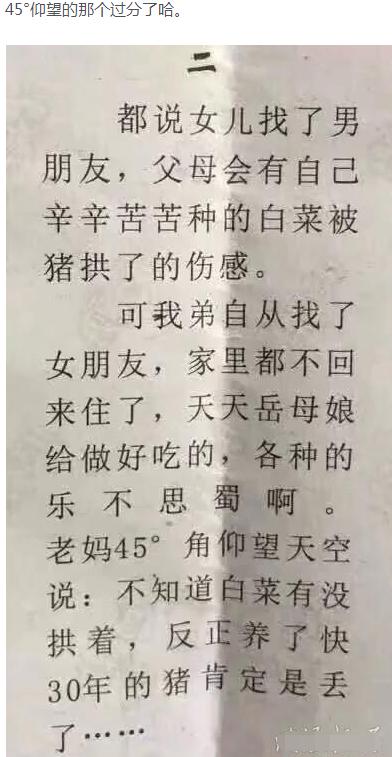 45°仰望的那个过分了哈。
二
都说女儿找了男
朋友，父母会有自己
辛辛苦苦种的白菜被
猪拱了的伤感。
可我弟自从找了
女朋友，家里都不回
来住了，天天岳母娘
给做好吃的，各种的
乐不思蜀啊。
老妈45°角仰望天空
说：不知道白菜有没
拱着，反正养了快
30年的猪肯定是丢
了……